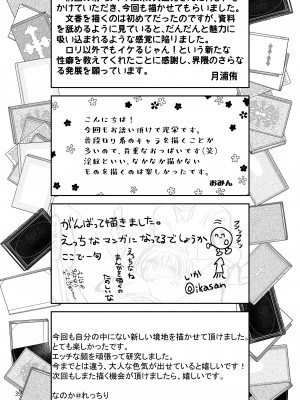 かけていただき、今回も描かせてもらいました。
文香を描くのは初めてだったのですが、資料
を舐めるように見ていると、だんだんと魅力に
吸い込まれるような感覚に陥りました。
ロリ以外でもイケるじゃん！という新たな
性癖を教えてくれたことに感謝し、界隈のさらな
る発展を願っています。
月浦侑
こんにちは！
今回もお誘い頂けて光栄です。
普段ロリ系のキャラを描くことが
多いので、貴重なおっぱいです(笑)
淫紋といい、なかなか描かない
ものを描くのは楽しかったです。
おみん
がんばって描きました。
えっちなマンガになってるでしょうか
ここで一句
えっちなな
まんが描くの
たのしいな
いか
@ikasan
今回も自分の中にない新しい境地を描かせて頂けました。
とても楽しかったです。
エッチな顔を頑張って研究しました。
今までと違う、大人な色気が出せていると嬉しいです！
次回もしまた描く機会が頂けましたら、嬉しいです。
なのか@れっちり